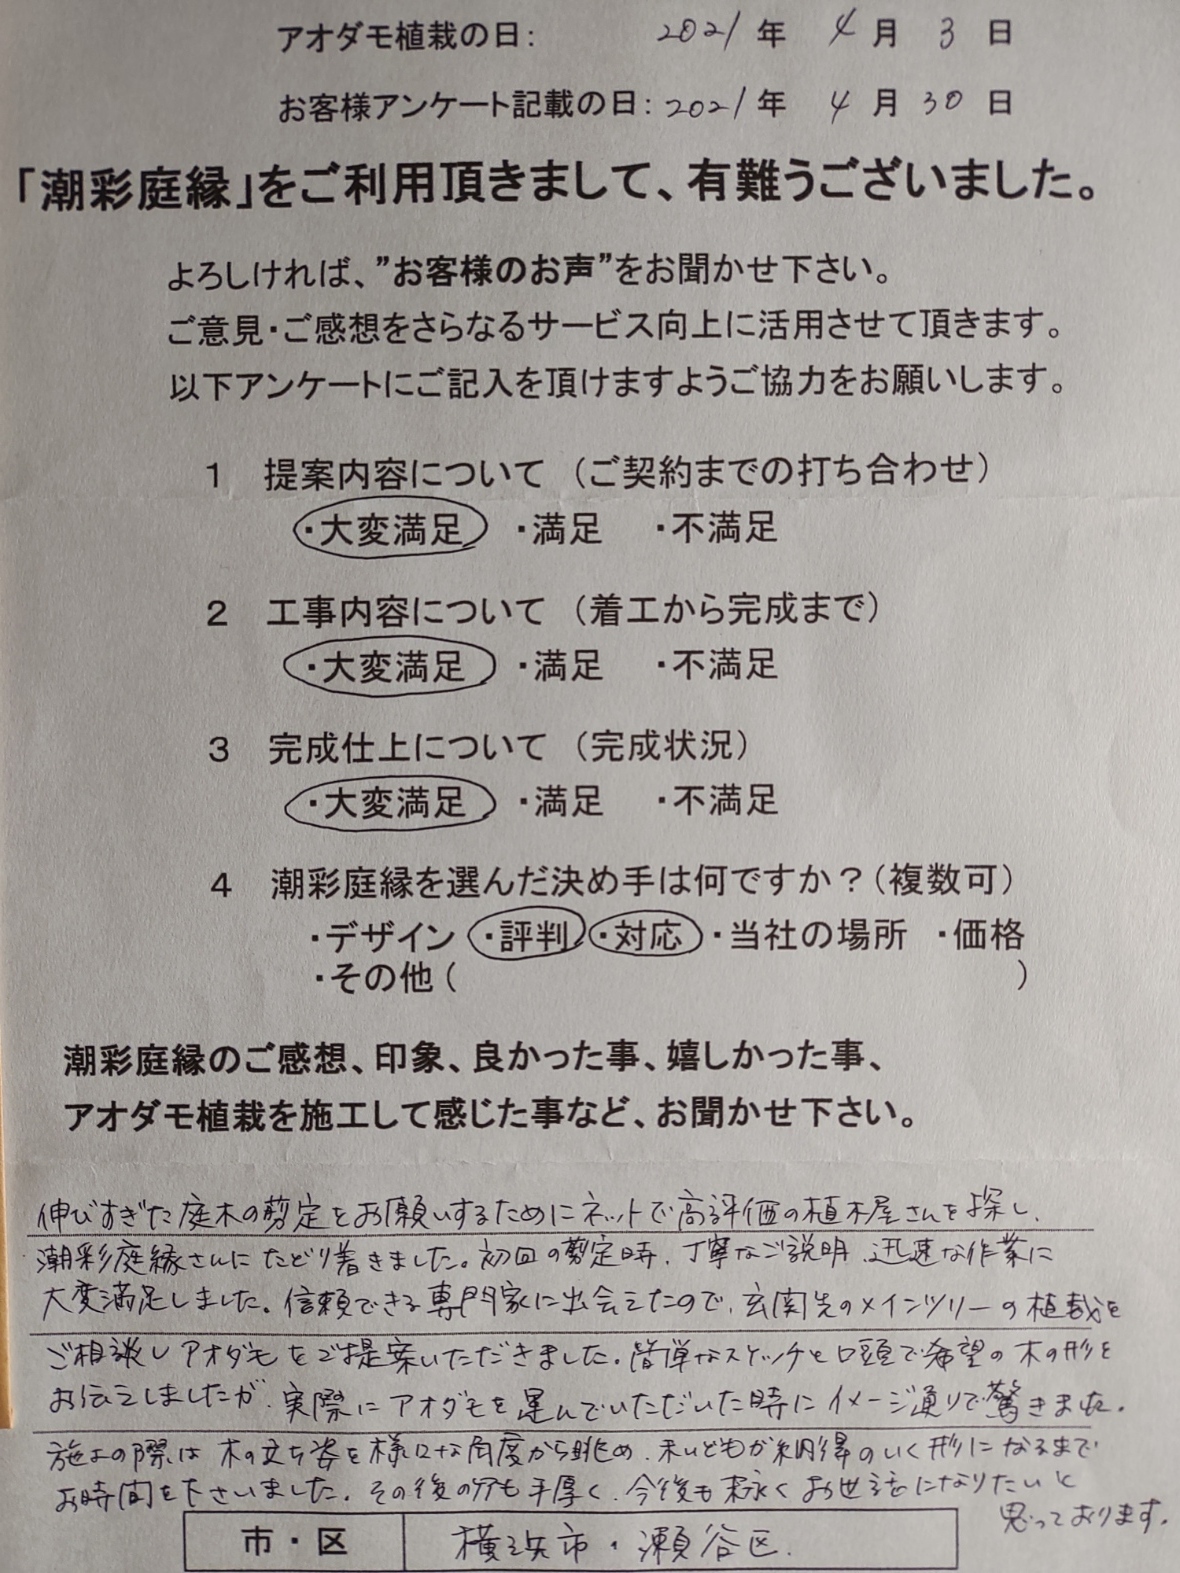 アオダモ植栽の日: 2021年 4月 3日
お客様アンケート記載の日: 2021年 4月 30日
「潮彩庭縁」をご利用頂きまして、有難うございました。
よろしければ、"お客様のお声"をお聞かせ下さい。
ご意見・ご感想をさらなるサービス向上に活用させて頂きます。
以下アンケートにご記入を頂けますようご協力をお願いします。
1 提案内容について (ご契約までの打ち合わせ)
・大変満足 ・満足 ・不満足
2 工事内容について (着工から完成まで)
・大変満足 ・満足 ・不満足
3 完成仕上について (完成状況)
・大変満足 ・満足 ・不満足
4 潮彩庭縁を選んだ決め手は何ですか?(複数可)
・デザイン ・評判 ・対応 ・当社の場所 ・価格
・その他( )
潮彩庭縁のご感想、印象、良かった事、嬉しかった事、
アオダモ植栽を施工して感じた事など、お聞かせ下さい。
伸びすぎた庭木の剪定をお願いするためにネットで高評価の植木屋さんを探し、
潮彩庭縁さんにたどり着きました。初回の剪定時、丁寧なご説明、迅速な作業に
大変満足しました。信頼できる専門家に出会えたので、玄関先のメインツリーの植栽を
ご相談しアオダモをご提案いただきました。簡単なスケッチと口頭で希望の木の形を
お伝えしましたが、実際にアオダモを運んでいただいた時にイメージ通りで驚きました。
施工の際は木の立ち姿を様々な角度から眺め、私どもが納得のいく形になるまで
お時間を下さいました。その後のケアも手厚く、今後も末永くお世話になりたいと
思っております。
市・区 横浜市・瀬谷区.